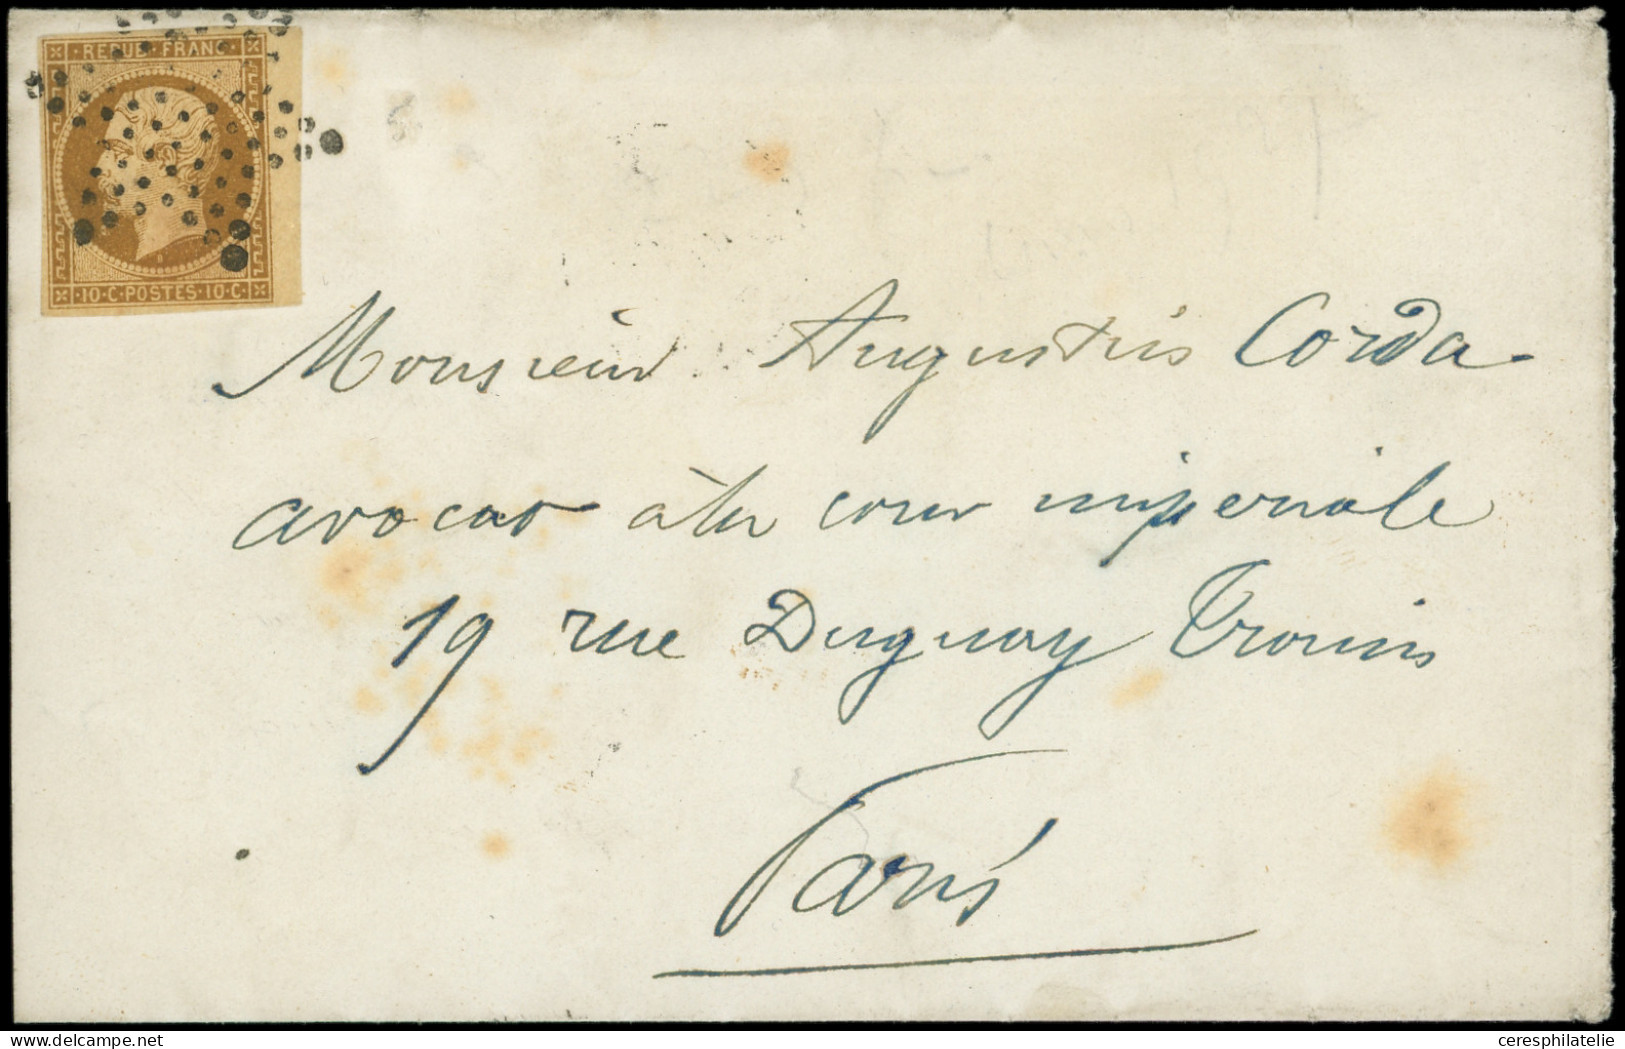 REPUB. FRANC.
10·C·POSTES·10·C·
Monsieur Augustin Corda
avocat à la cour impériale
19 rue Duguay Trouin
Paris
delcampe.net
ceresphilatelie